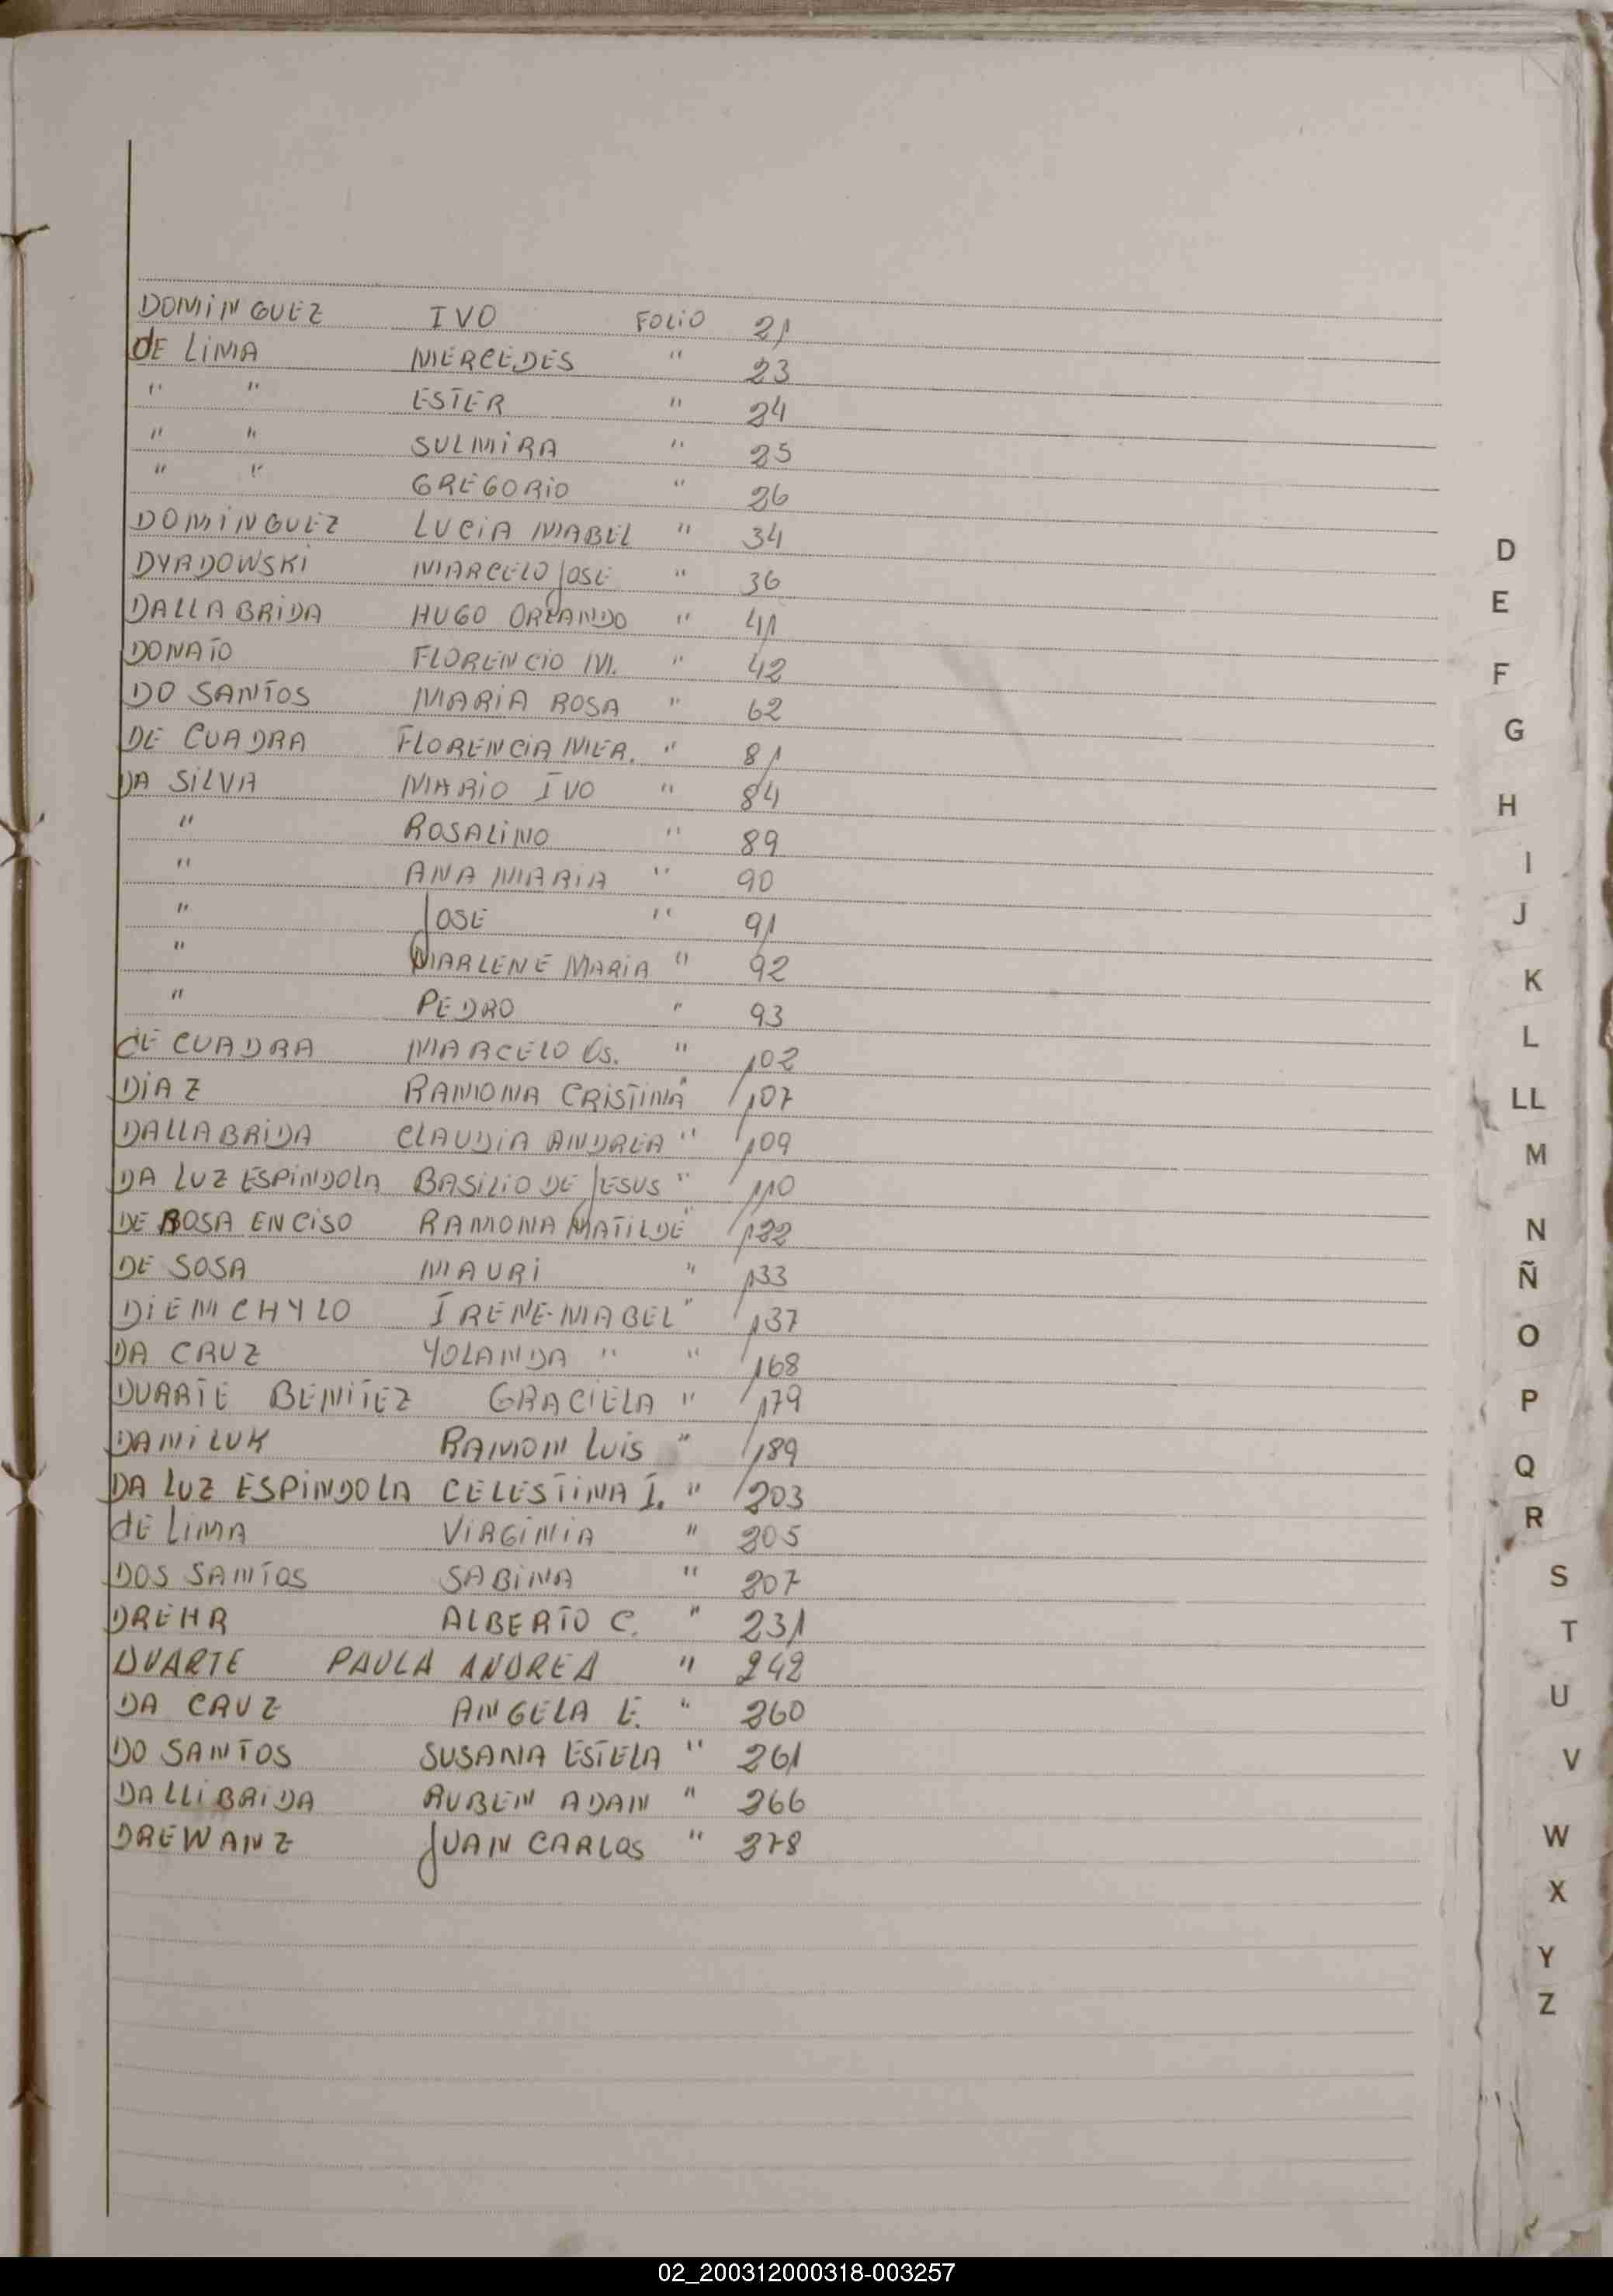 DOMINGUEZ IVO FOLIO 21
dE LIMA MERCEDES " 23
" " ESTER " 24
" " SULMIRA " 25
" " GREGORIO " 26
DOMINGUEZ LUCIA MABEL " 34
DYADOWSKI MARCELO JOSE " 36
DALLABRIDA HUGO ORLANDO " 41
DONATO FLORENCIO M. " 42
DO SANTOS MARIA ROSA " 62
DE CUADRA FLORENCIA MER. " 81
DA SILVA MARIO IVO " 84
" ROSALINO " 89
" ANA MARIA " 90
" JOSE " 91
" MARLENE MARIA " 92
" PEDRO " 93
dE CUADRA MARCELO Os. " 102
DIAZ RAMONA CRISTINA " 107
DALLABRIDA CLAUDIA ANDREA " 109
DA LUZ ESPINDOLA BASILIO DE JESUS " 110
DE ROSA ENCISO RAMONA MATILDE " 132
DE SOSA MAURI " 133
DIEMCHYLO IRENE-MABEL " 137
DA CRUZ YOLANDA " " 168
DUARTE BENITEZ GRACIELA " 179
DANILUK RAMON LUIS " 189
DA LUZ ESPINDOLA CELESTINA I. " 203
dE LIMA VIRGINIA " 205
DOS SANTOS SABINA " 207
DREHR ALBERTO C. " 231
DUARTE PAULA ANDREA " 242
DA CRUZ ANGELA E. " 260
DO SANTOS SUSANA ESTELA " 261
DALLIBRIDA RUBEN ADAN " 266
DREWANZ JUAN CARLOS " 278
D
E
F
G
H
I
J
K
L
LL
M
N
Ñ
O
P
Q
R
S
T
U
V
W
X
Y
Z
02_200312000318-003257